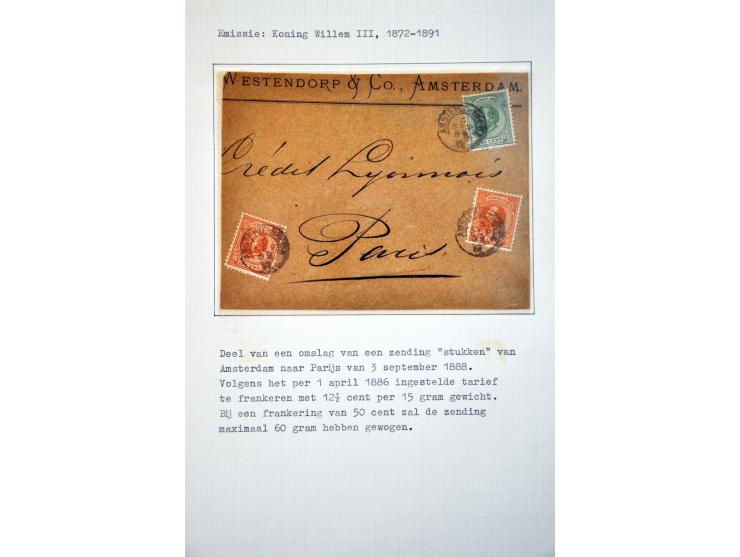 Emissie: Koning Willem III, 1872-1891
WESTENDORP & Co., AMSTERDAM.
Crédit Lyonnais
Paris.
Deel van een omslag van een zending "stukken" van
Amsterdam naar Parijs van 3 september 1888.
Volgens het per 1 april 1886 ingestelde tarief
te frankeren met 12½ cent per 15 gram gewicht.
Bij een frankering van 50 cent zal de zending
maximaal 60 gram hebben gewogen.